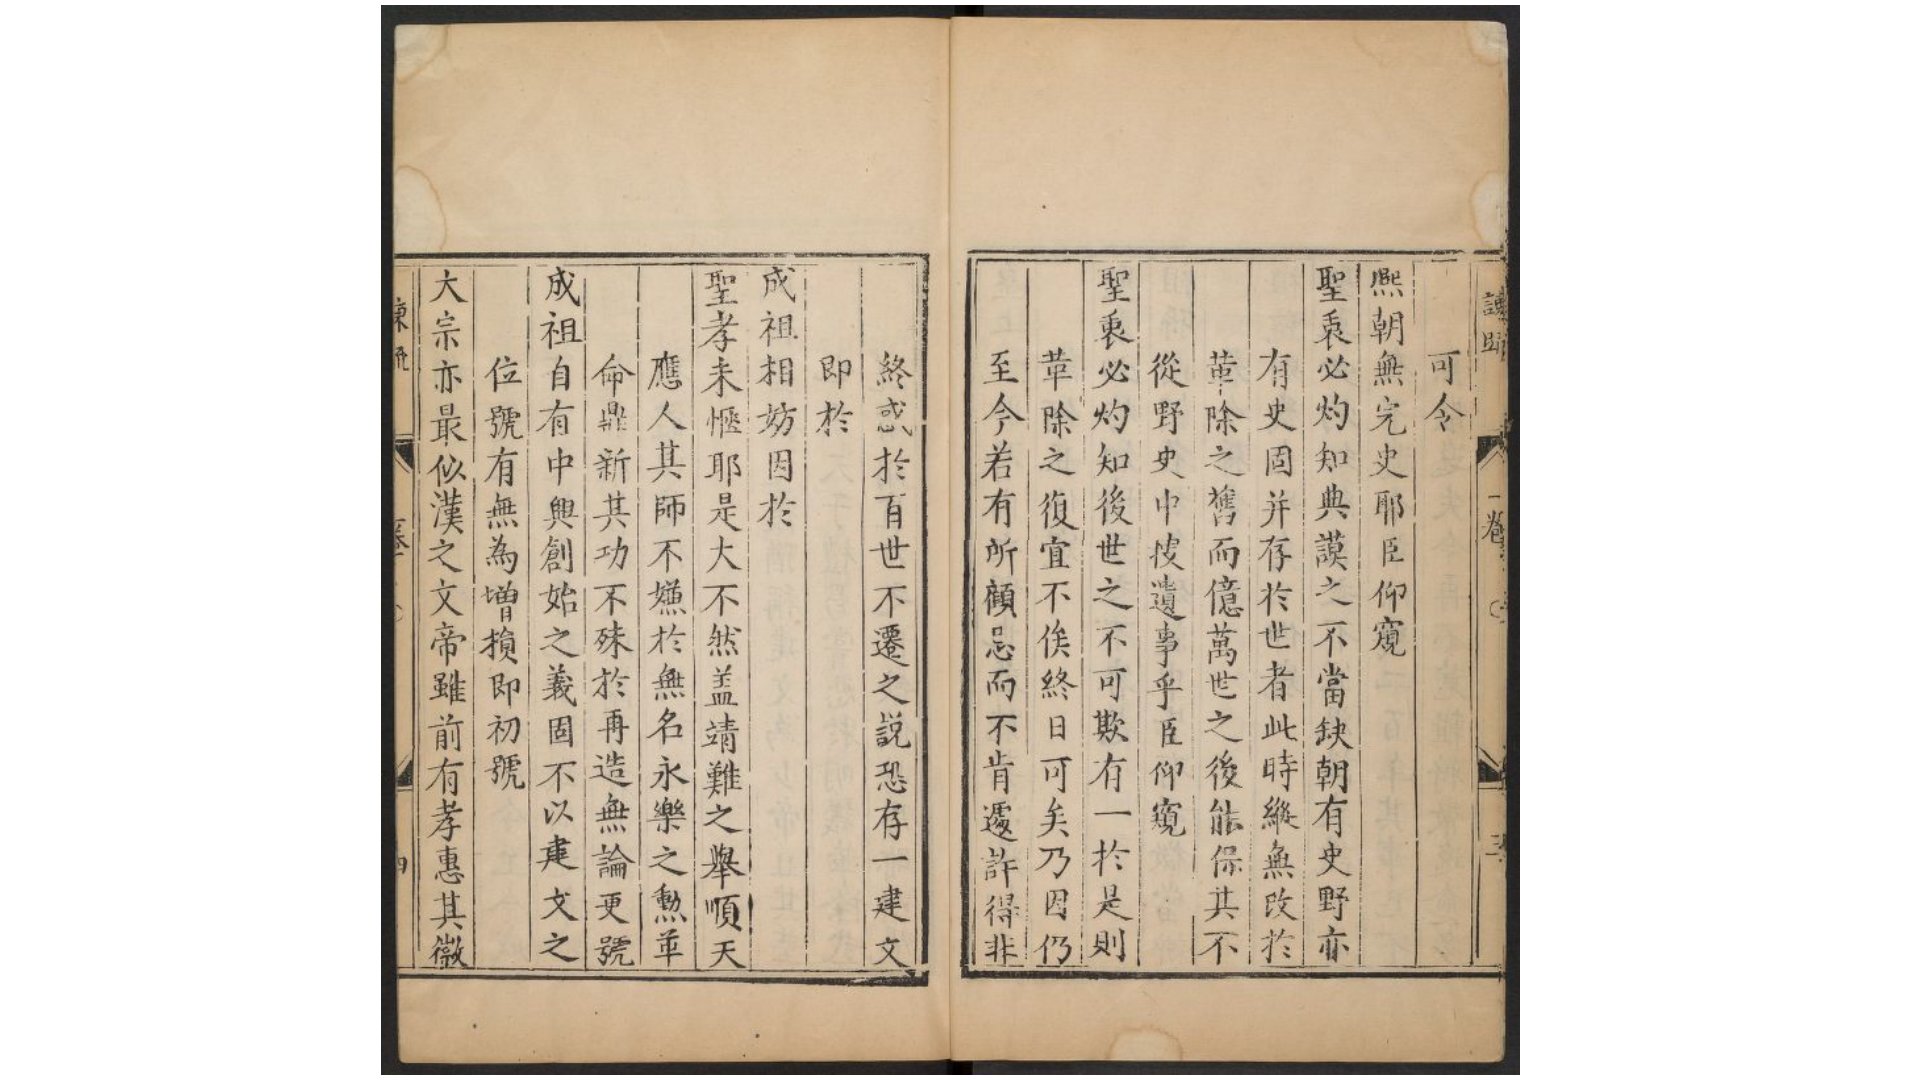 諫
卷
可令
熙朝無完史耶臣仰窺
聖衷必灼知典謨之不當缺朝有史野亦
有史固并存於世者此時縱無改於
革除之舊而億萬世之後能保其不
從野史中搜遺事乎臣仰窺
聖衷必灼知後世之不可欺有一於是則
革除之復宜不俟終日可矣乃因仍
至今若有所顧忌而不肯遽許得非
終惑於百世不遷之説恐存一建文
即於
成祖相妨因於
聖孝未愜耶是大不然盖靖難之舉順天
應人其師不嫌於無名永樂之勲革
命鼎新其功不殊於再造無論更號
成祖自有中興創始之義固不以建文之
位號有無為增損即初號
太宗亦最似漢之文帝雖前有孝惠其微
四